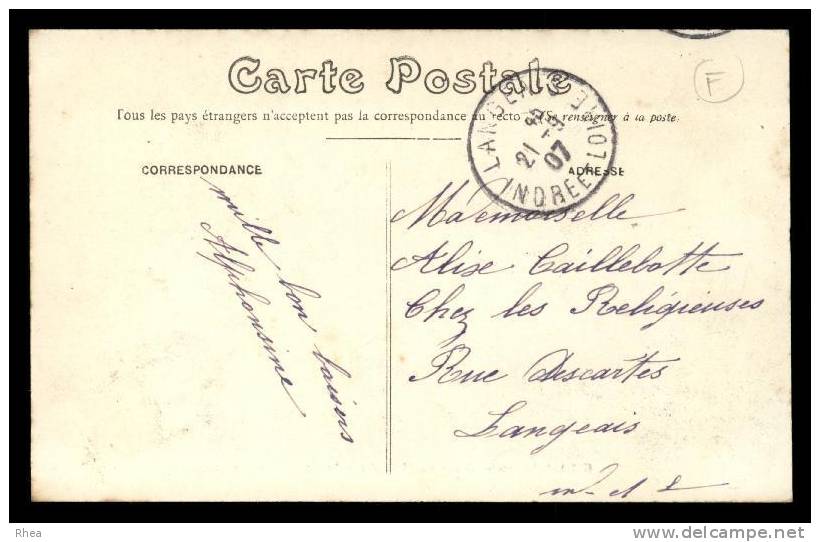 Carte Postale
Tous les pays étrangers n'acceptent pas la correspondance au recto (Se renseigner à la poste.
CORRESPONDANCE
ADRESSE
mille bon baisers
Alphonsine
Mademoiselle
Alise Caillebotte
Chez les Religieuses
Rue Descartes
Langeais
LANGEAIS
21 -8
07
INDRE ET LOIRE
F
Rhea
delcampe.net